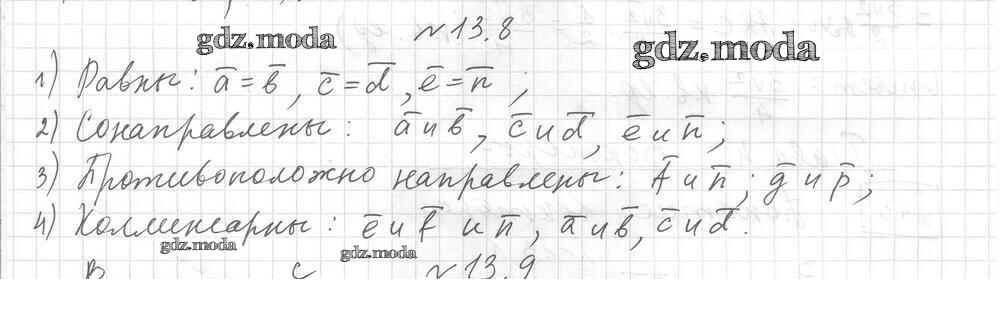 №13.8
gdz.moda gdz.moda
1) Равны: a̅ = b̅, c̅ = d̅, e̅ = n̅;
2) Сонаправлены: a̅ и b̅, c̅ и d̅, e̅ и n̅;
3) Противоположно направлены: f̅ и n̅; g̅ и p̅;
4) Коллинеарны: e̅ и f̅ и n̅, a̅ и b̅, c̅ и d̅.
gdz.moda gdz.moda
B C №13.9